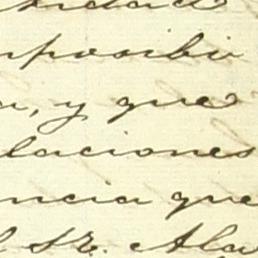 mposibi
, y que
laciones
ncia que
l Sr. Ala